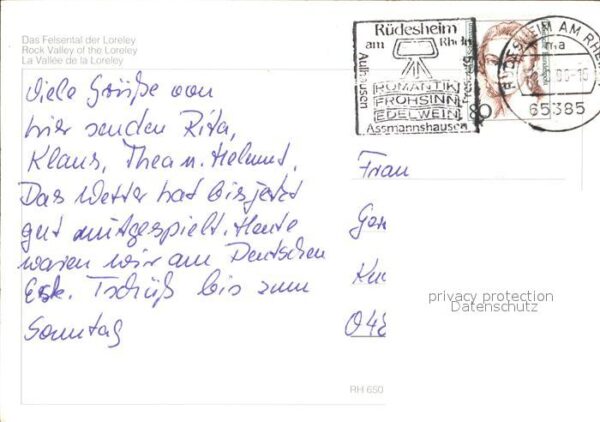 Das Felsental der Loreley
Rock Valley of the Loreley
La Vallée de la Loreley
Viele Grüße von
hier senden Rita,
Klaus, Thea u. Helmut.
Das Wetter hat bis jetzt
gut mitgespielt. Heute
waren wir am Deutschen
Eck. Tschüß bis zum
Sonntag
Rüdesheim
am Rhein
Aulhausen
ROMANTIK
FROHSINN
EDELWEIN
Assmannshausen
80
RÜDESHEIM AM RHEIN
ma
65385
Frau
privacy protection
Datenschutz
RH 650